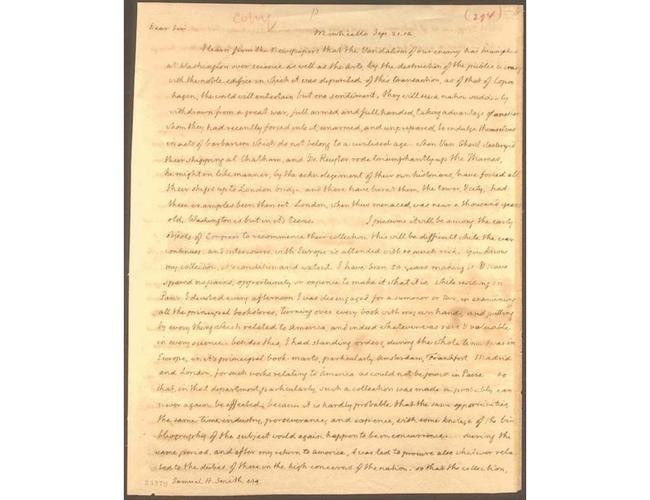 copy P (294)
Dear Sir Monticello Sep. 21. 14
I learn from the Newspapers that the Vandalism of our enemy has triumphed
at Washington over science as well as the Arts, by the destruction of the public library
with the noble edifice in which it was deposited. of this transaction, as of that of Copen-
hagen, the world will entertain but one sentiment. they will see a nation suddenly
withdrawn from a great war, full armed and full handed, taking advantage of another
whom they had recently forced into it, unarmed, and unprepared, to indulge themselves
in acts of barbarism which do not belong to a civilised age. when Van Ghent destroyed
their shipping at Chatham, and De Ruyter rode triumphantly up the Thames,
he might in like manner, by the acknolegement of their own historians, have forced all
their ships up to London bridge, and there have burnt them, the tower, & city, had
these examples been then set. London, when thus menaced, was near a thousand years
old, Washington is but in it's teens. I presume it will be among the early
objects of Congress to recommence their collection. this will be difficult while the war
continues, and intercourse with Europe is attended with so much risk. You know
my collection, it's condition and extent. I have been 50. years making it, & have
spared no pains, opportunity or expence to make it what it is. while residing in
Paris I devoted every afternoon I was disengaged, for a summer or two, in examining
all the principal bookstores, turning over every book with my own hand, and putting
by every thing which related to America, and indeed whatever was rare & valuable
in every science. besides this, I had standing orders, during the whole time I was in
Europe, in it's principal book-marts, particularly Amsterdam, Frankfort, Madrid
and London, for such works relating to America as could not be found in Paris. so
that, in that department particularly, such a collection was made as probably can
never again be effected; because it is hardly probable that the same opportunities,
the same time, industry, perseverance, and expence, with some knolege of the bib-
liography of the subject would again happen to be in concurrence. during the
same period, and after my return to America, I was led to procure also whatever rela-
ted to the duties of those in the high concerns of the nation. so that the collection,
Samuel H. Smith esq.